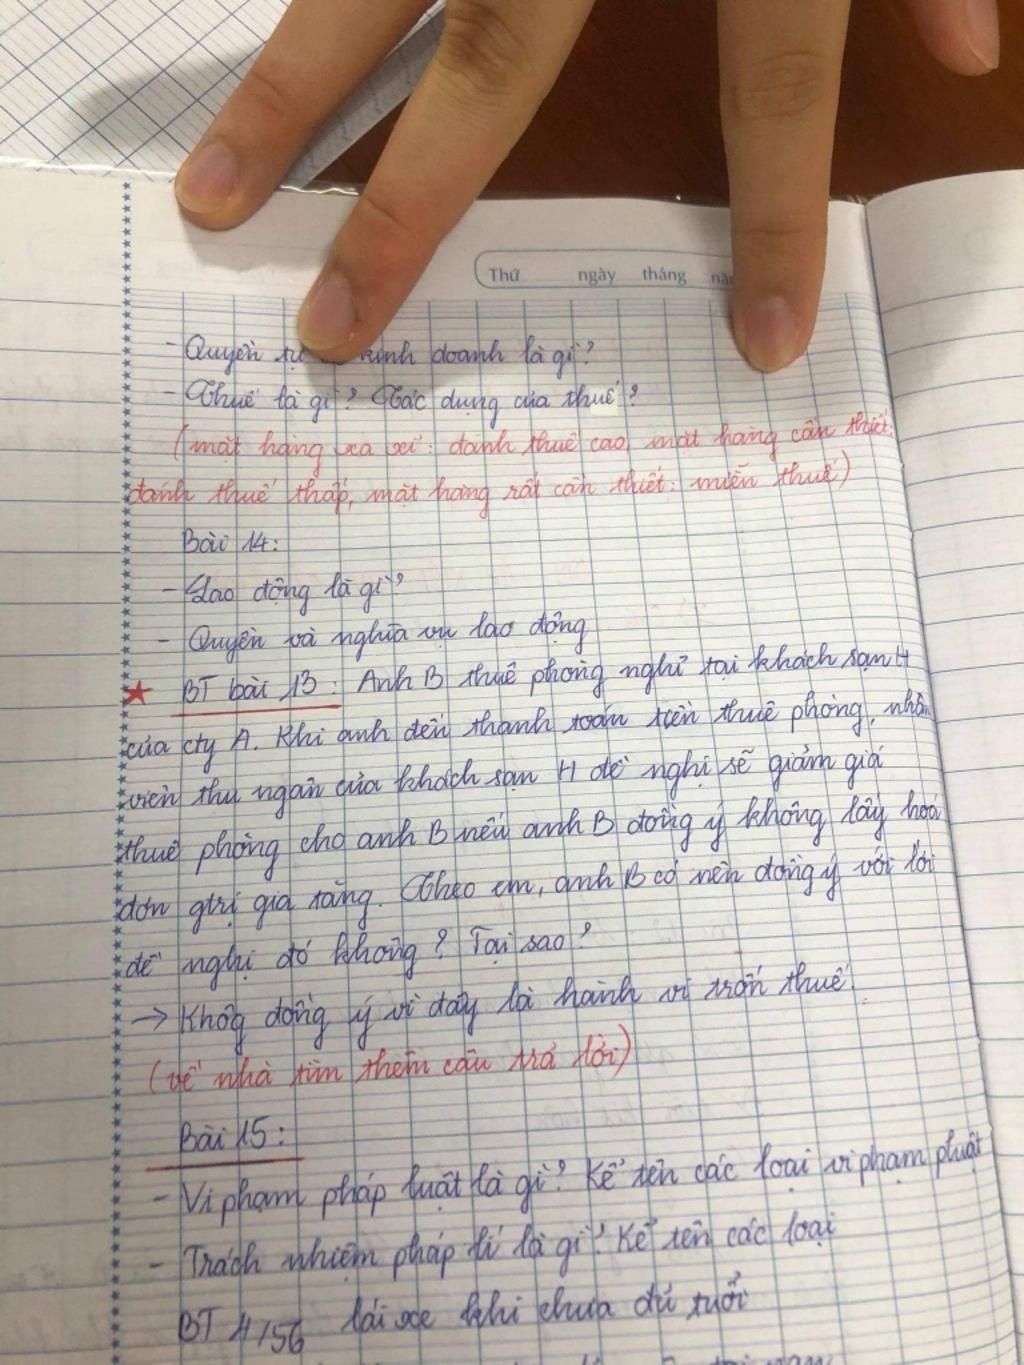 Thứ ngày tháng
- Quyền tự kinh doanh là gì?
- Thuế là gì? Tác dụng của thuế?
(mặt hàng xa xỉ: đánh thuế cao, mặt hàng cần thiết:
đánh thuế thấp, mặt hàng rất cần thiết: miễn thuế)
Bài 14:
- Lao động là gì?
- Quyền và nghĩa vụ lao động
★ BT bài 13: Anh B thuê phòng nghỉ tại khách sạn H
của cty A. Khi anh đến thanh toán tiền thuê phòng, nhân
viên thu ngân của khách sạn H đề nghị sẽ giảm giá
thuê phòng cho anh B nếu anh B đồng ý không lấy hoá
đơn gtrị gia tăng. Theo em, anh B có nên đồng ý với lời
đề nghị đó không? Tại sao?
→ Khôg đồng ý vì đây là hành vi trốn thuế.
(về nhà tìm thêm câu trả lời)
Bài 15:
- Vi phạm pháp luật là gì? Kể tên các loại vi phạm pluật
- Trách nhiệm pháp lí là gì? Kể tên các loại
BT 4/56 lái xe khi chưa đủ tuổi